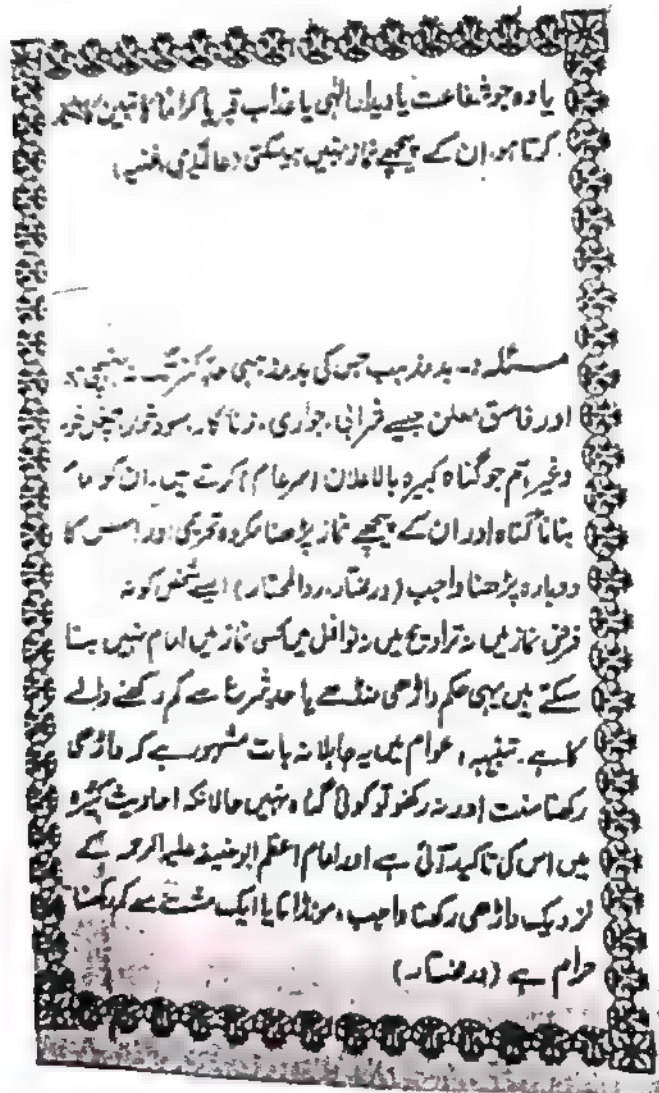 یا وہ جو شفاعت یا دیدار الٰہی یا عذاب قبر یا کراماً کاتبین کا انکار
کرتا ہو، ان کے پیچھے نماز نہیں ہوسکتی (عالمگیری،
مسئلہ :- بدمذہب جس کی بدمذہبی حد کفر تک نہ پہنچی ہو
اور فاسق معلن جیسے شرابی، جواری، زناکار، سود خور، چغل خور
وغیرہم جو گناہ کبیرہ بالاعلان (سرعام) کرتے ہیں۔ ان کو امام
بنانا گناہ اور ان کے پیچھے نماز پڑھنا مکروہ تحریمی اور اس کا
دوبارہ پڑھنا واجب (درمختار، ردالمحتار) ایسے شخص کو نہ
فرض نماز میں نہ تراویح میں نہ نوافل میں کسی نماز میں امام نہیں بنا
سکتے ہیں یہی حکم داڑھی منڈے یا حد شرع سے کم رکھنے والے
کا ہے۔ تنبیہہ، عوام میں یہ جاہلانہ بات مشہور ہے کہ داڑھی
رکھنا سنت اور نہ رکھو تو کوئی گناہ نہیں حالانکہ احادیث کثیرہ
میں اس کی تاکید آئی ہے اور امام اعظم ابو حنیفہ علیہ الرحمہ کے
نزدیک داڑھی رکھنا واجب، منڈانا یا ایک مشت سے کم رکھنا
حرام ہے (درمختار)